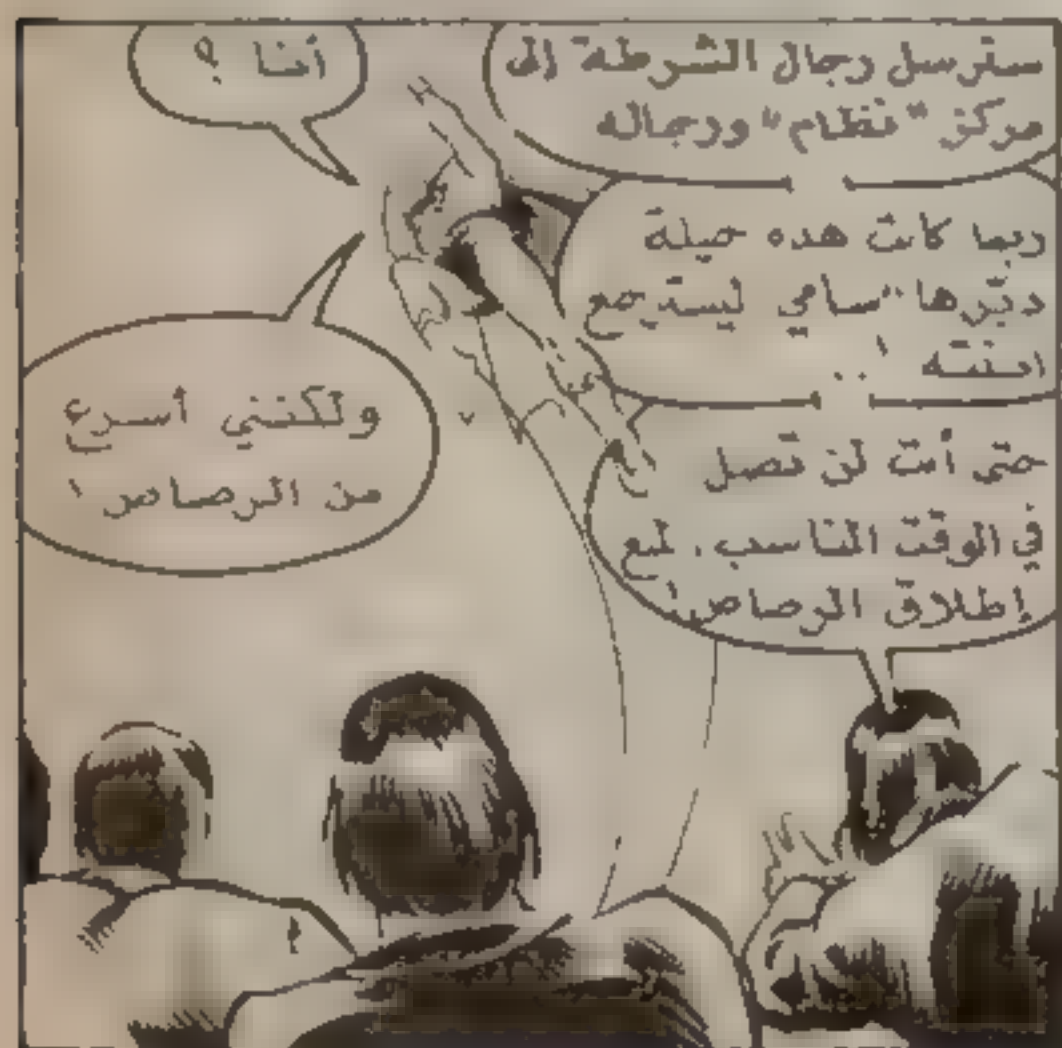 سترسل رجال الشرطة إلى
مركز "نظام" ورجاله
ربما كانت هده حيلة
دبّرها "سامي ليسترجع
ابنته ! ..
حتى أنت لن تصل
في الوقت المناسب، لمنع
إطلاق الرصاص !
أنا ؟
ولكنني أسرع
من الرصاص !